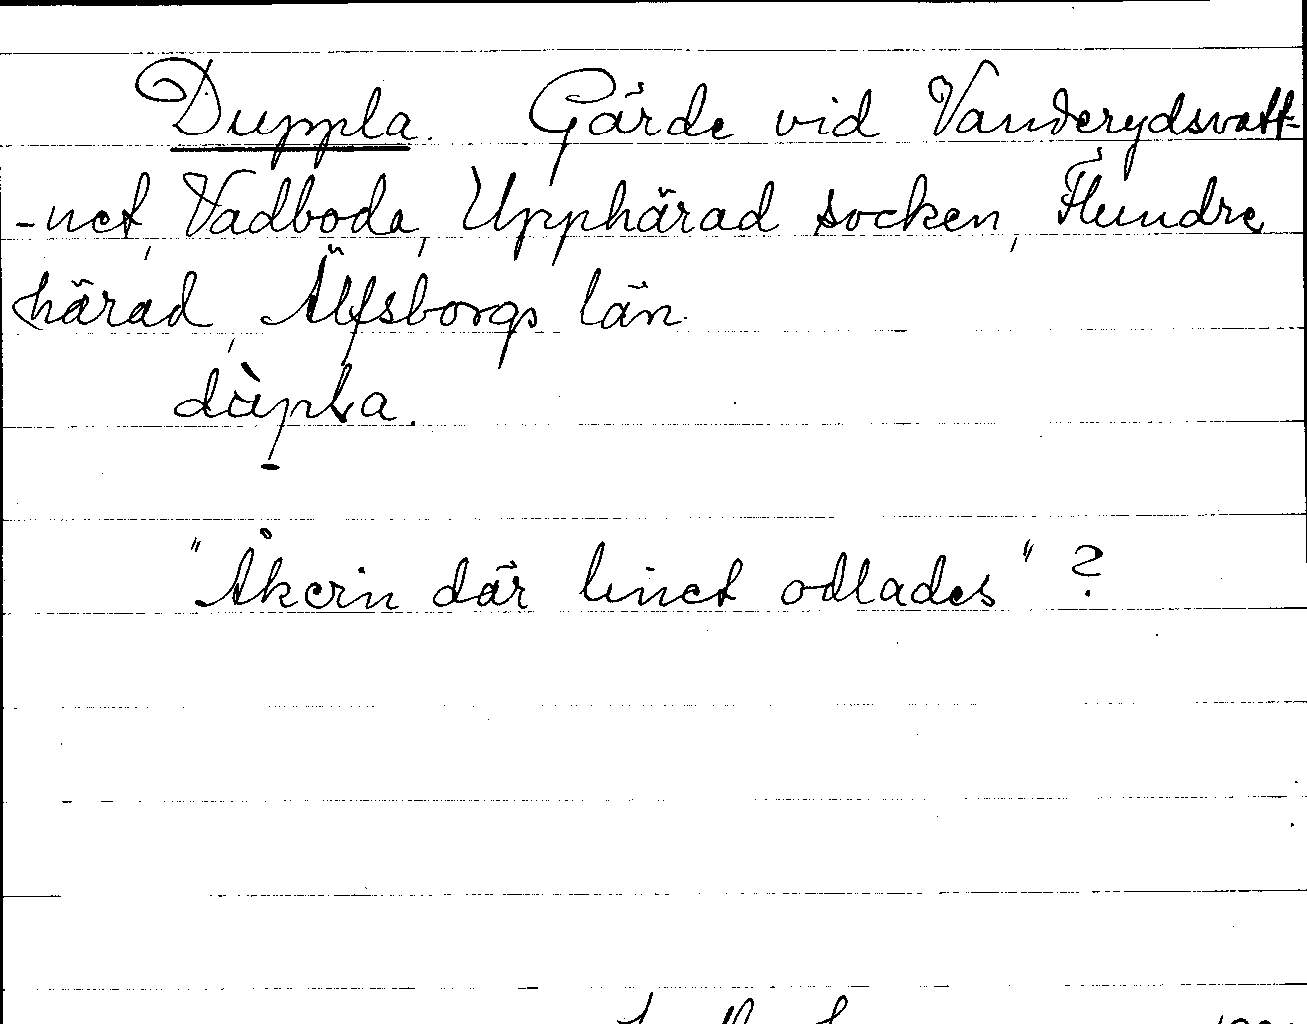 Duppla. Gärde vid Vanderydsvatt-
-net, Vadboda, Upphärad socken, Flundre
härad, Älfsborgs län.
dùpla.
"Åkern där linet odlades" ?